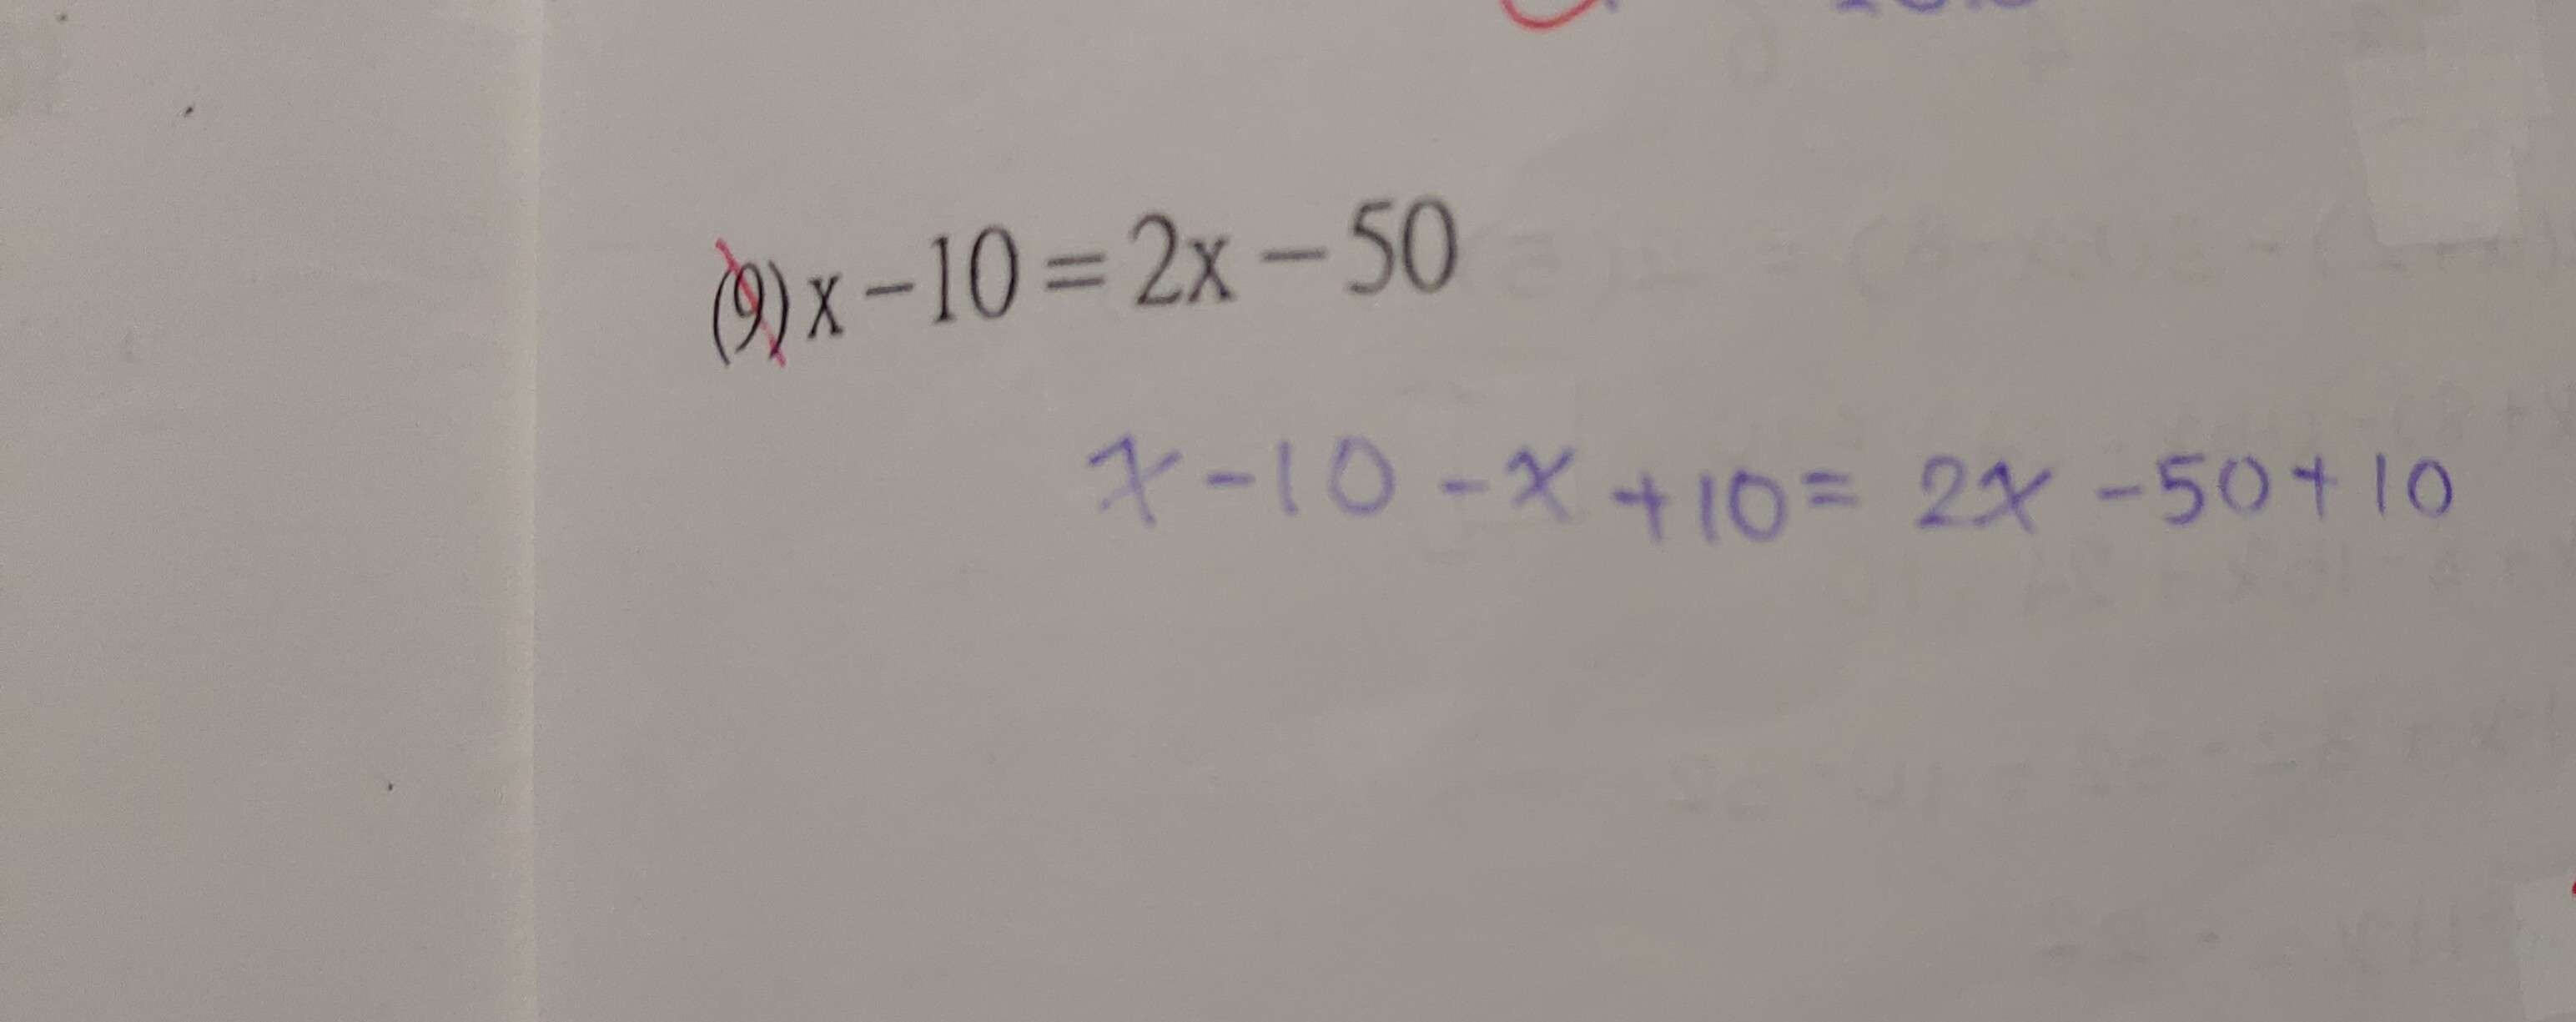 (9) x − 10 = 2x − 50
x - 10 - x + 10 = 2x - 50 + 10